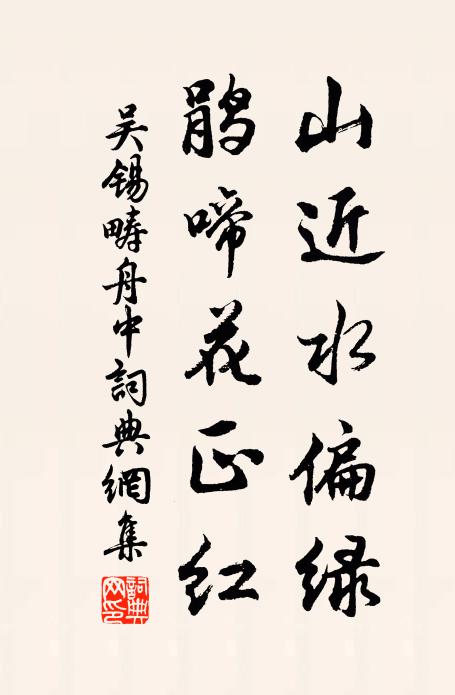 山近水偏绿
鹃啼花正红
吴锡畴舟中詞典網集
詞典网印